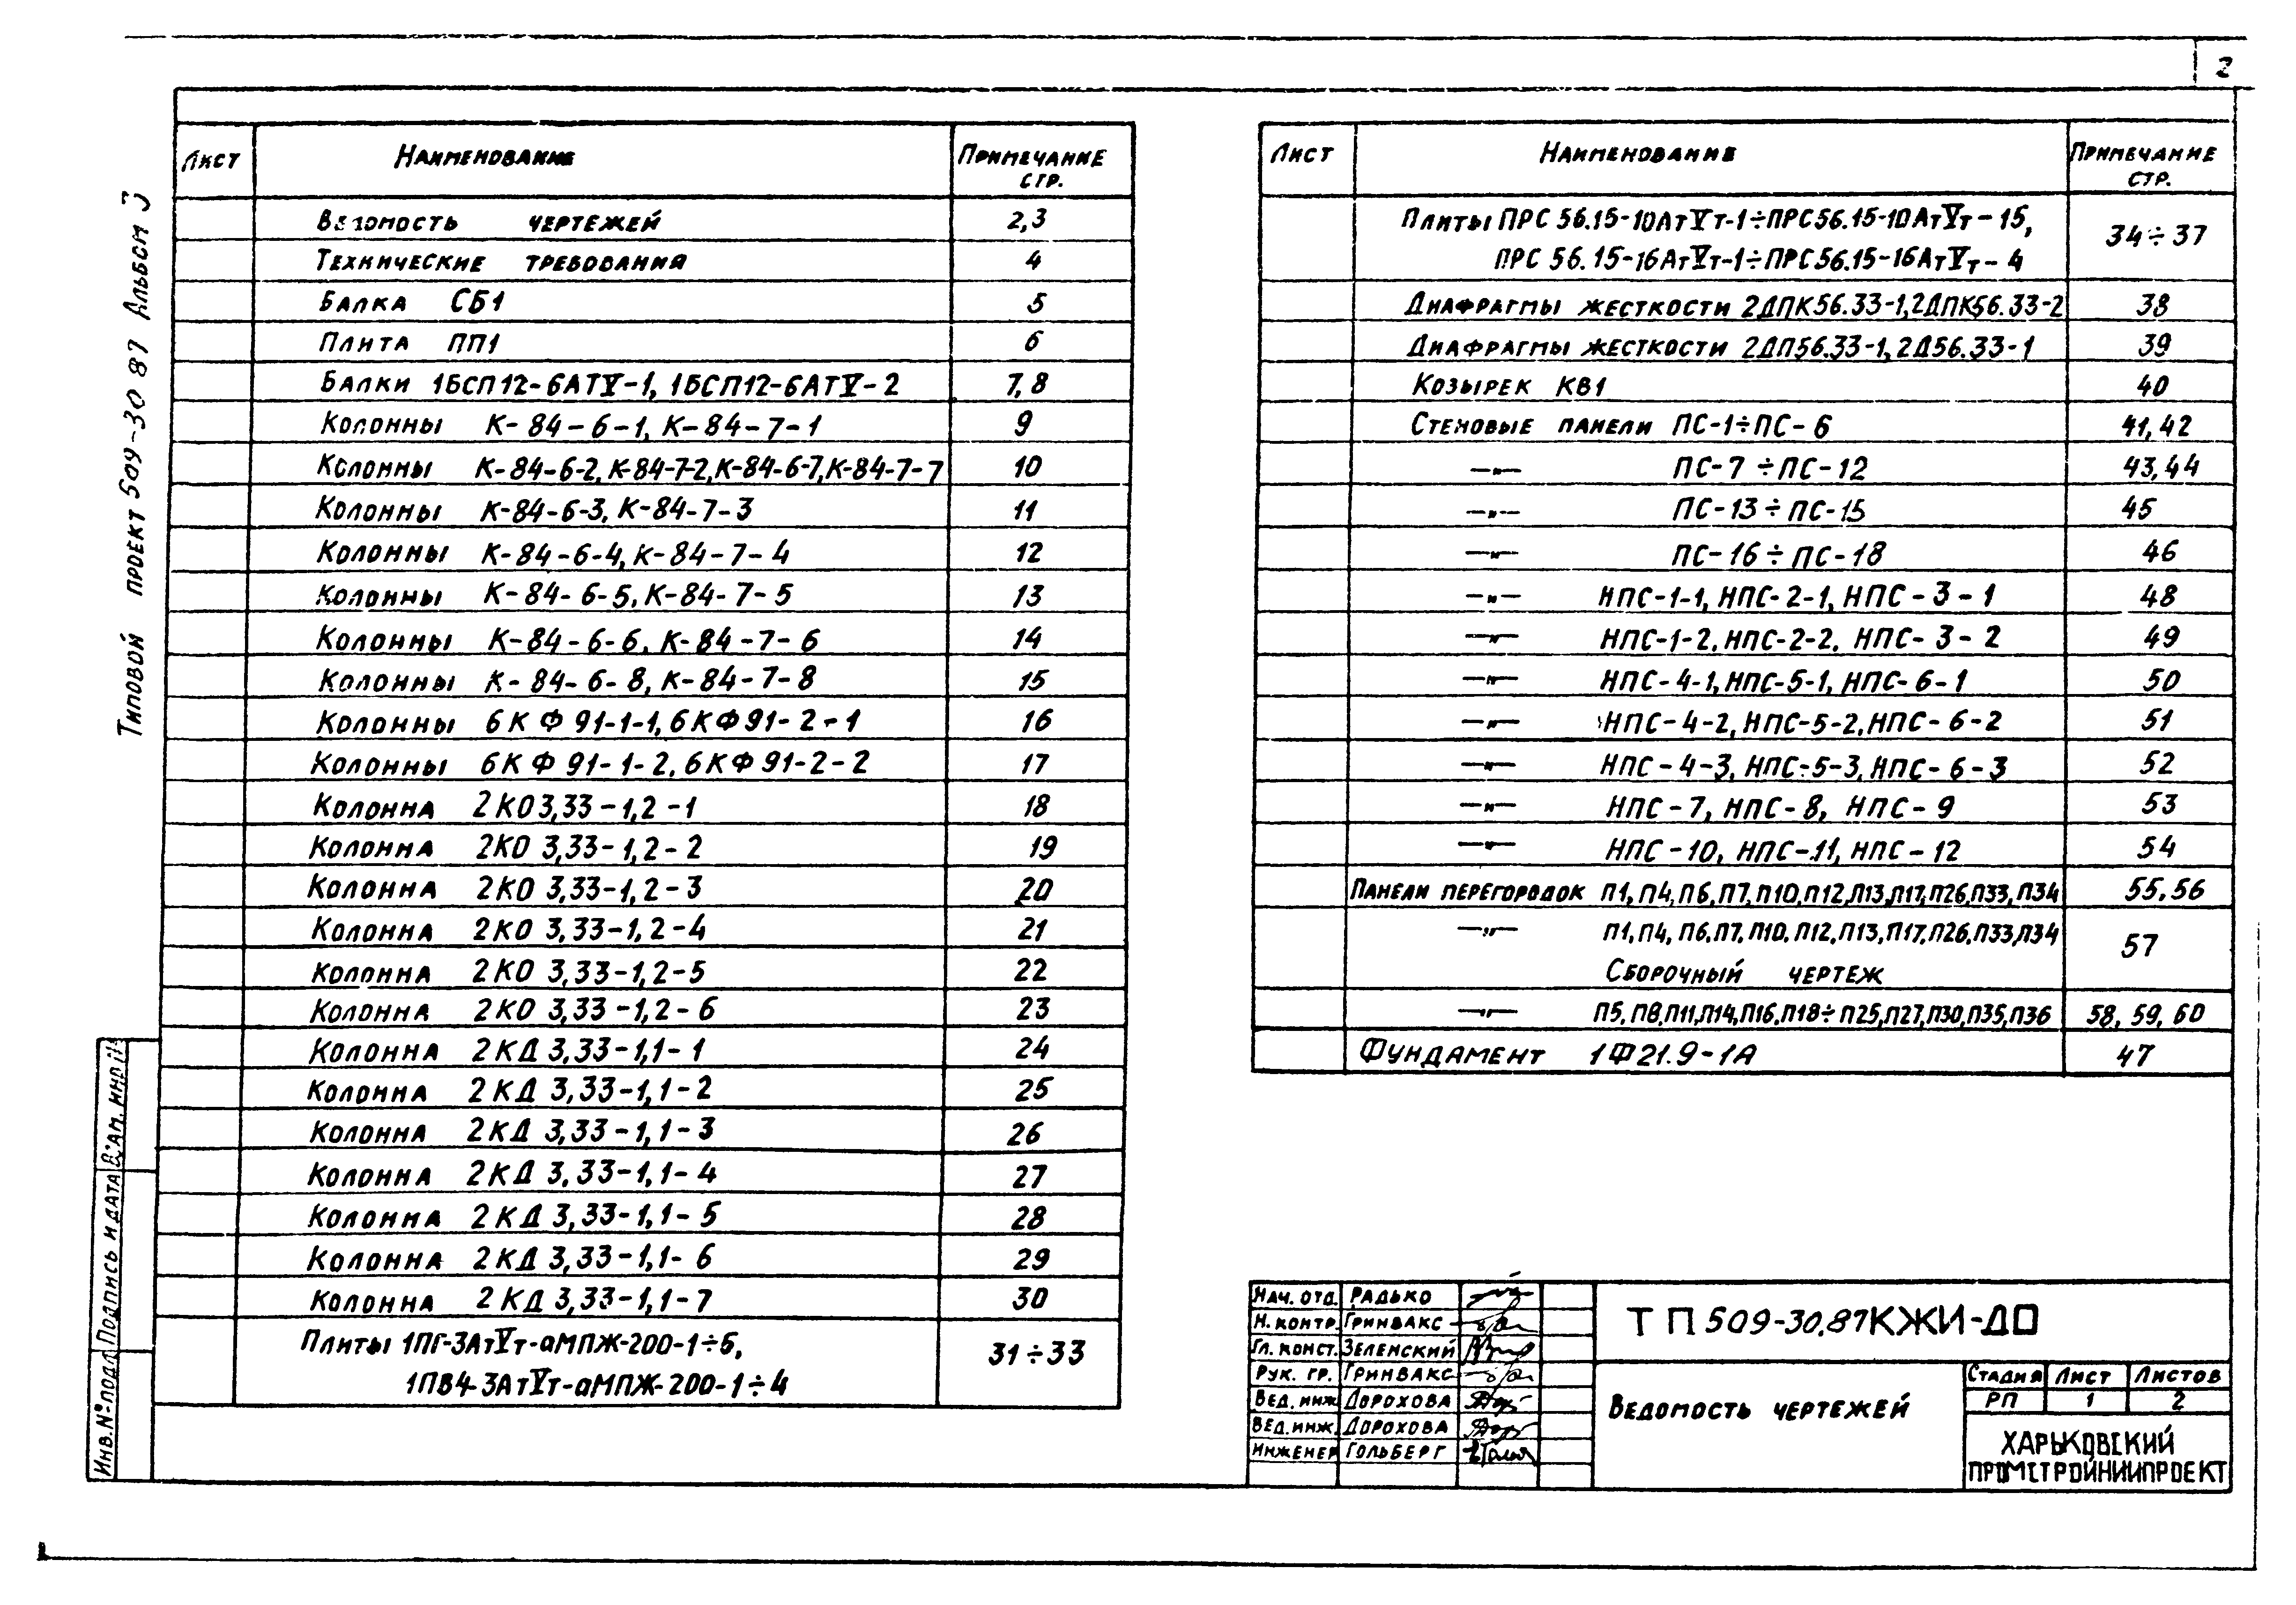 2
Типовой проект 509-30 87 Альбом 3
Лист Наименование Примечание стр.
Ведомость чертежей 2,3
Технические требования 4
Балка СБ1 5
Плита ПП1 6
Балки 1БСП12-6АТV-1, 1БСП12-6АТV-2 7,8
Колонны К-84-6-1, К-84-7-1 9
Колонны К-84-6-2, К-84-7-2, К-84-6-7, К-84-7-7 10
Колонны К-84-6-3, К-84-7-3 11
Колонны К-84-6-4, К-84-7-4 12
Колонны К-84-6-5, К-84-7-5 13
Колонны К-84-6-6, К-84-7-6 14
Колонны К-84-6-8, К-84-7-8 15
Колонны 6КФ91-1-1, 6КФ91-2-1 16
Колонны 6КФ91-1-2, 6КФ91-2-2 17
Колонна 2КО3,33-1,2-1 18
Колонна 2КО 3,33-1,2-2 19
Колонна 2КО 3,33-1,2-3 20
Колонна 2КО 3,33-1,2-4 21
Колонна 2КО 3,33-1,2-5 22
Колонна 2КО 3,33-1,2-6 23
Колонна 2КД 3,33-1,1-1 24
Колонна 2КД 3,33-1,1-2 25
Колонна 2КД 3,33-1,1-3 26
Колонна 2КД 3,33-1,1-4 27
Колонна 2КД 3,33-1,1-5 28
Колонна 2КД 3,33-1,1-6 29
Колонна 2КД 3,33-1,1-7 30
Плиты 1ПГ-3АтVт-аМПЖ-200-1÷5, 31÷33
1ПВ4-3АтVт-аМПЖ-200-1÷4
Лист Наименование Примечание стр.
Плиты ПРС 56.15-10АтVт-1÷ПРС56.15-10АтVт-15, 34÷37
ПРС 56.15-16АтVт-1÷ПРС56.15-16АтVт-4
Диафрагмы жесткости 2ДПК56.33-1, 2ДПК56.33-2 38
Диафрагмы жесткости 2ДП56.33-1, 2Д56.33-1 39
Козырек КВ1 40
Стеновые панели ПС-1÷ПС-6 41,42
—"— ПС-7÷ПС-12 43,44
—"— ПС-13÷ПС-15 45
—"— ПС-16÷ПС-18 46
—"— НПС-1-1, НПС-2-1, НПС-3-1 48
—"— НПС-1-2, НПС-2-2, НПС-3-2 49
—"— НПС-4-1, НПС-5-1, НПС-6-1 50
—"— НПС-4-2, НПС-5-2, НПС-6-2 51
—"— НПС-4-3, НПС-5-3, НПС-6-3 52
—"— НПС-7, НПС-8, НПС-9 53
—"— НПС-10, НПС-11, НПС-12 54
Панели перегородок П1, П4, П6, П7, П10, П12, П13, П17, П26, П33, П34 55,56
—"— П1, П4, П6, П7, П10, П12, П13, П17, П26, П33, П34 57
Сборочный чертеж
—"— П5, П8, П11, П14, П16, П18÷П25, П27, П30, П35, П36 58, 59, 60
Фундамент 1Ф21.9-1А 47
Инв.№подл Подпись и дата Взам. инв
Нач. отд. Радько
Н. контр. Гринвакс
Гл. конст. Зеленский
Рук. гр. Гринвакс
Вед. инж Дорохова
Вед. инж. Дорохова
Инженер Гольберг
ТП 509-30.87 КЖИ-ДО
Ведомость чертежей
Стадия Лист Листов
РП 1 2
ХАРЬКОВСКИЙ
ПРОМСТРОЙНИИПРОЕКТ